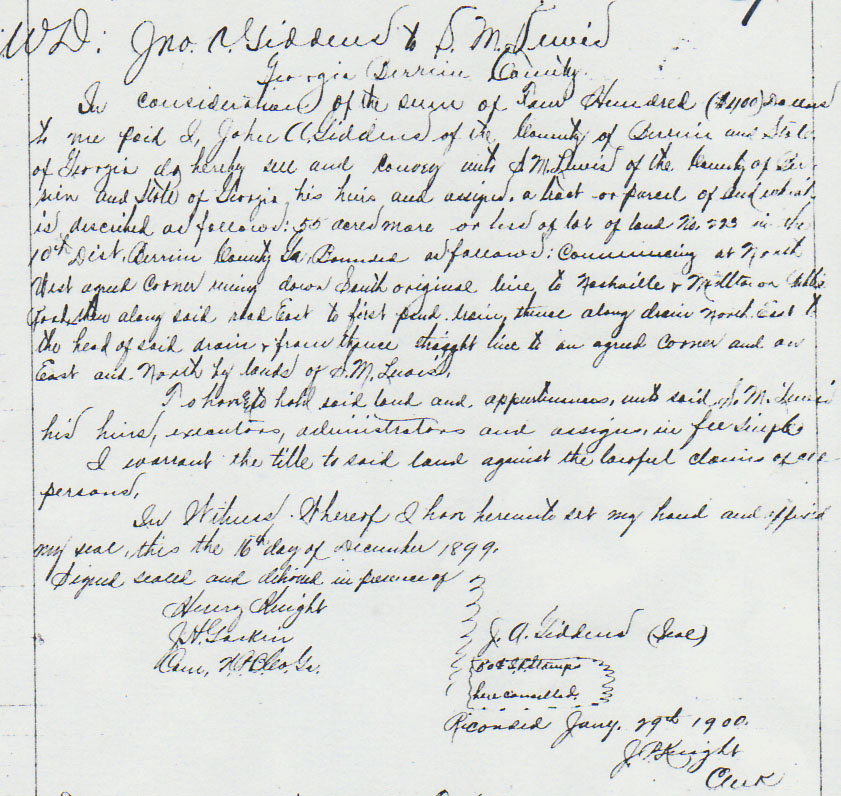 WD: Jno. A. Giddens to S. M. Lewis
Georgia Berrien County.
In consideration of the sum of Four Hundred ($400) Dollars
to me paid I, John A Giddens of the County of Berrien and State
of Georgia do hereby sell and convey unto S M. Lewis of the County of Ber-
rien and State of Georgia, his heirs and assigns, a tract or parcel of land what
is described as follows: 55 acres more or less of lot of land No. 223 in the
10th Dist. Berrien County Ga. Bounded as follows: Commencing at North
West agreed corner runing down South original line to Nashville & Milltown Public
road, then along said road East to first pond drain, thence along drain North East to
the head of said drain & from thence straight line to an agreed corner and on
East and North by lands of S. M. Lewis.
To have & to hold said land and appurtenances, unto said S. M. Lewis
his heirs, executors, administrators and assigns, in fee simple
I warrant the title to said land against the lawful claims of all
persons.
In Witness Whereof I have hereunto set my hand and affixed
my seal, this the 16th day of December 1899.
Signed sealed and delivered in presence of
Henry Knight
J. H. Gaskin
Com. N. P. & Co. Ga.
J. A. Giddens (Seal)
I. R. Stamps
here cancelled.
Recorded Jany. 29th 1900.
J. P. Knight
Clerk